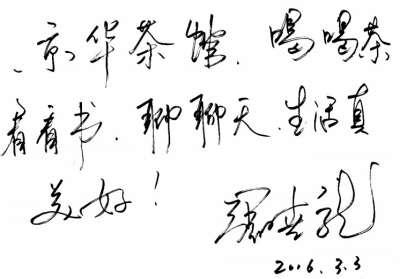 京华茶 喝喝茶
看看书,聊聊天,生活真
美好!
2016.3.3